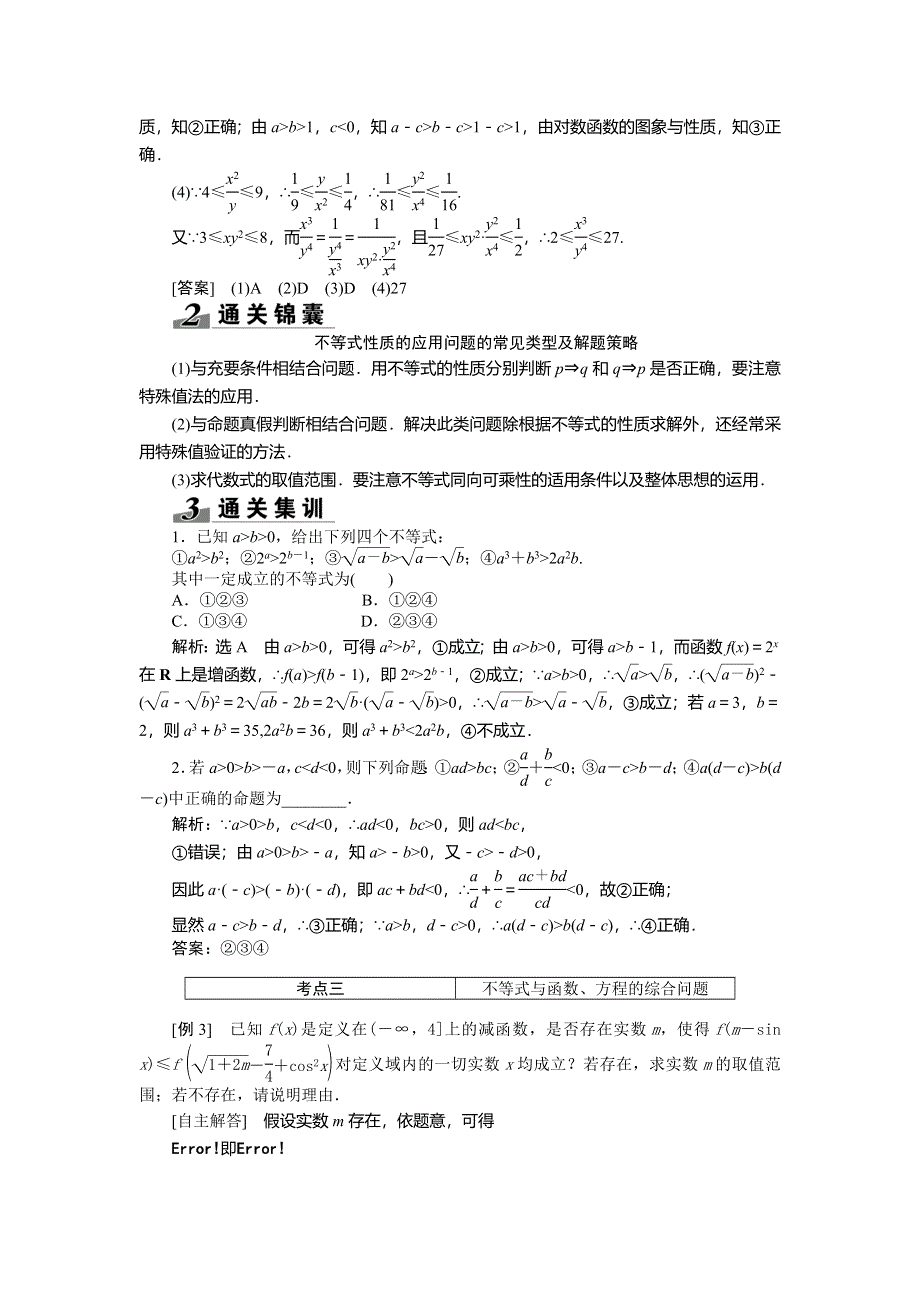 质，知②正确；由 a>b>1，c<0，知 a－c>b－c>1－c>1，由对数函数的图象与性质，知③正
确．
(4)∵4≤x²/y≤9，∴1/9≤y/x²≤1/4，∴1/81≤y²/x⁴≤1/16.
又∵3≤xy²≤8，而x³/y⁴＝1/(y⁴/x³)＝1/(xy²·y²/x⁴)，且1/27≤xy²·y²/x⁴≤1/2，∴2≤x³/y⁴≤27.
[答案] (1)A (2)D (3)D (4)27
2 通关锦囊
不等式性质的应用问题的常见类型及解题策略
(1)与充要条件相结合问题．用不等式的性质分别判断 p⇒q 和 q⇒p 是否正确，要注意
特殊值法的应用．
(2)与命题真假判断相结合问题．解决此类问题除根据不等式的性质求解外，还经常采
用特殊值验证的方法．
(3)求代数式的取值范围．要注意不等式同向可乘性的适用条件以及整体思想的运用．
3 通关集训
1．已知 a>b>0，给出下列四个不等式：
①a²>b²；②2ᵃ>2ᵇ⁻¹；③√(a－b)>√a－√b；④a³＋b³>2a²b.
其中一定成立的不等式为( )
A．①②③ B．①②④
C．①③④ D．②③④
解析：选 A 由 a>b>0，可得 a²>b²，①成立；由 a>b>0，可得 a>b－1，而函数 f(x)＝2ˣ
在 R 上是增函数，∴f(a)>f(b－1)，即 2ᵃ>2ᵇ⁻¹，②成立；∵a>b>0，∴√a>√b，∴(√(a－b))²－
(√a－√b)²＝2√ab－2b＝2√b·(√a－√b)>0，∴√(a－b)>√a－√b，③成立；若 a＝3，b＝
2，则 a³＋b³＝35,2a²b＝36，则 a³＋b³<2a²b，④不成立．
2．若 a>0>b>－a，c<d<0，则下列命题：①ad>bc；②a/d＋b/c<0；③a－c>b－d；④a(d－c)>b(d
－c)中正确的命题为________．
解析：∵a>0>b，c<d<0，∴ad<0，bc>0，则 ad<bc，
①错误；由 a>0>b>－a，知 a>－b>0，又－c>－d>0，
因此 a·(－c)>(－b)·(－d)，即 ac＋bd<0，∴a/d＋b/c＝(ac＋bd)/cd<0，故②正确；
显然 a－c>b－d，∴③正确；∵a>b，d－c>0，∴a(d－c)>b(d－c)，∴④正确．
答案：②③④
考点三 不等式与函数、方程的综合问题
[例 3] 已知 f(x)是定义在(－∞，4]上的减函数，是否存在实数 m，使得 f(m－sin
x)≤f(√(1＋2m)－7/4＋cos²x)对定义域内的一切实数 x 均成立？若存在，求实数 m 的取值范
围；若不存在，请说明理由．
[自主解答] 假设实数 m 存在，依题意，可得
Error!即Error!